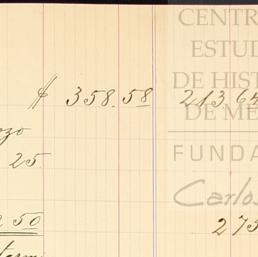 CENTR
ESTUD
DE HIST
DE ME
FUNDA
Carlos
$ 358.58 213.64
25
50
275